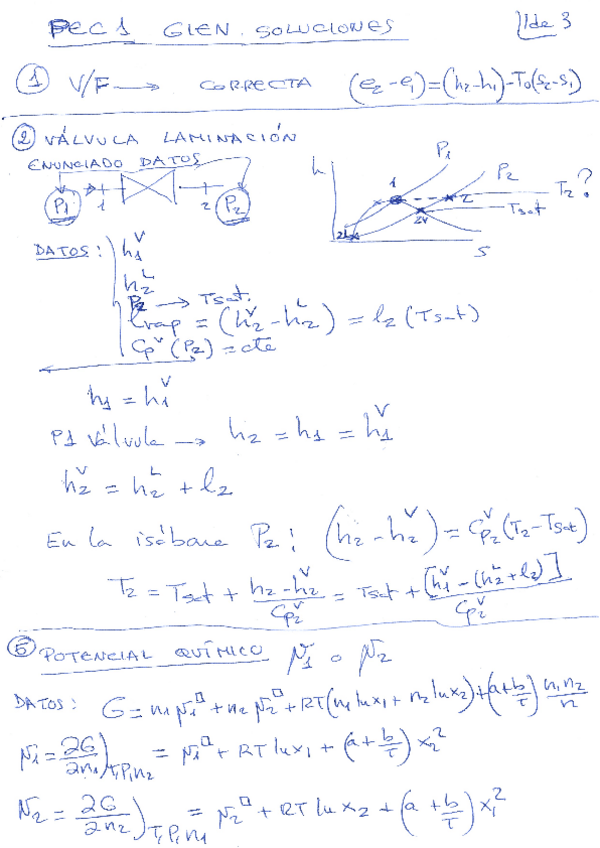 PEC1 GIEN. SOLUCIONES 1 de 3
① V/F → CORRECTA (e₂-e₁)=(h₂-h₁)-T₀(s₂-s₁)
② VÁLVULA LAMINACIÓN
ENUNCIADO DATOS
P₁ 1 2 P₂
h P₁ P₂ 1 2 T₂? Tsat 2L 2V S
DATOS: h₁ⱽ
h₂ᴸ
P₂ → Tsat.
lvap = (h₂ⱽ - h₂ᴸ) = l₂ (Tsat)
Cpⱽ (P₂) = cte
h₁ = h₁ⱽ
P1 Válvula → h₂ = h₁ = h₁ⱽ
h₂ⱽ = h₂ᴸ + l₂
En la isóbara P₂: (h₂ - h₂ⱽ) = Cp₂ⱽ (T₂ - Tsat)
T₂ = Tsat + (h₂ - h₂ⱽ)/Cp₂ⱽ = Tsat + [h₁ⱽ - (h₂ᴸ + l₂)]/Cp₂ⱽ
⑤ POTENCIAL QUÍMICO μ₁ o μ₂
DATOS: G = n₁ μ₁□ + n₂ μ₂□ + RT(n₁ ln x₁ + n₂ ln x₂) + (a + b/T) n₁n₂/n
μ₁ = ∂G/∂n₁)T,P,n₂ = μ₁□ + RT ln x₁ + (a + b/T) x₂²
μ₂ = ∂G/∂n₂)T,P,n₁ = μ₂□ + RT ln x₂ + (a + b/T) x₁²